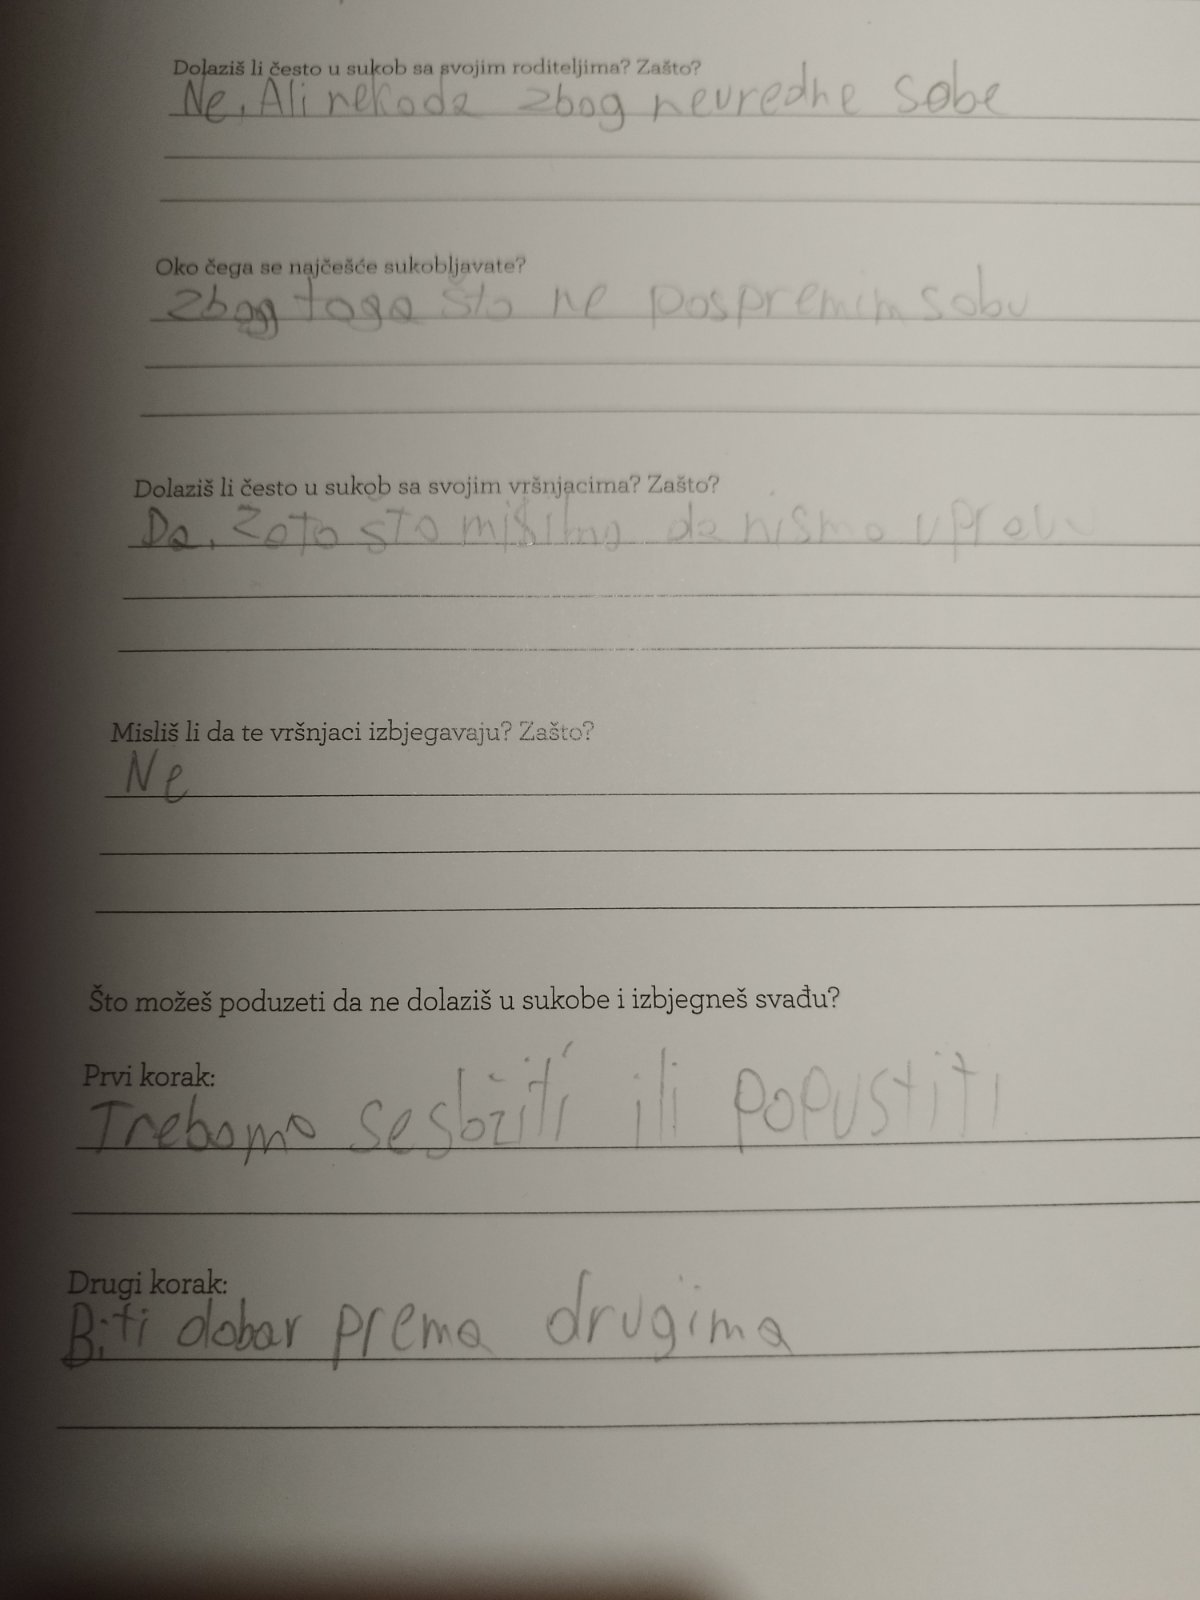 Dolaziš li često u sukob sa svojim roditeljima? Zašto?
Ne, Ali nekada zbog nevredne sobe
Oko čega se najčešće sukobljavate?
Zbog toga što ne pospremim sobu
Dolaziš li često u sukob sa svojim vršnjacima? Zašto?
Da, Zato sto mislimo da nismo upravu
Misliš li da te vršnjaci izbjegavaju? Zašto?
Ne
Što možeš poduzeti da ne dolaziš u sukobe i izbjegneš svađu?
Prvi korak:
Trebamo se ili popustiti
Drugi korak:
Biti dobar prema drugima